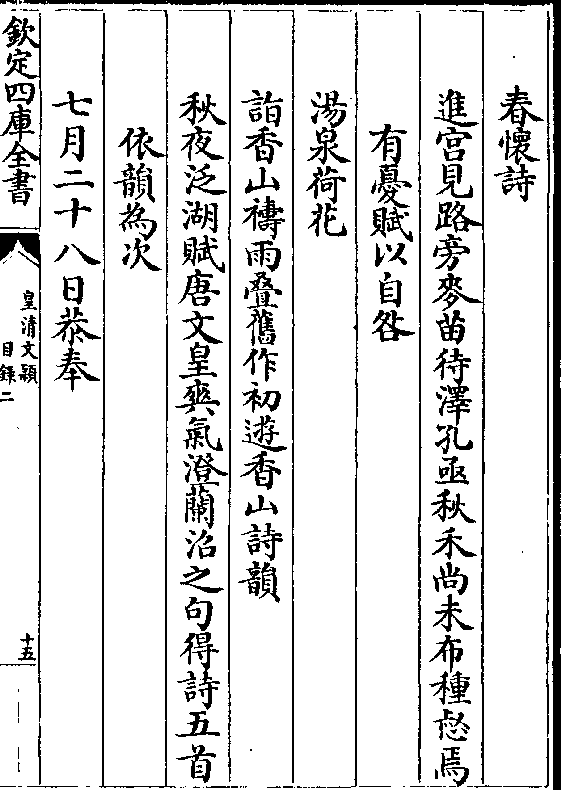 春懷詩
進宮見路旁麥苗待澤孔亟秋禾尚未布種愁焉
有憂賦以自咎
湯泉荷花
詣香山禱雨叠舊作初遊香山詩韻
秋夜泛湖賦唐文皇爽氣澄蘭沼之句得詩五首
依韻為次
七月二十八日恭奉
欽定四庫全書
皇清文穎
目錄二
十五